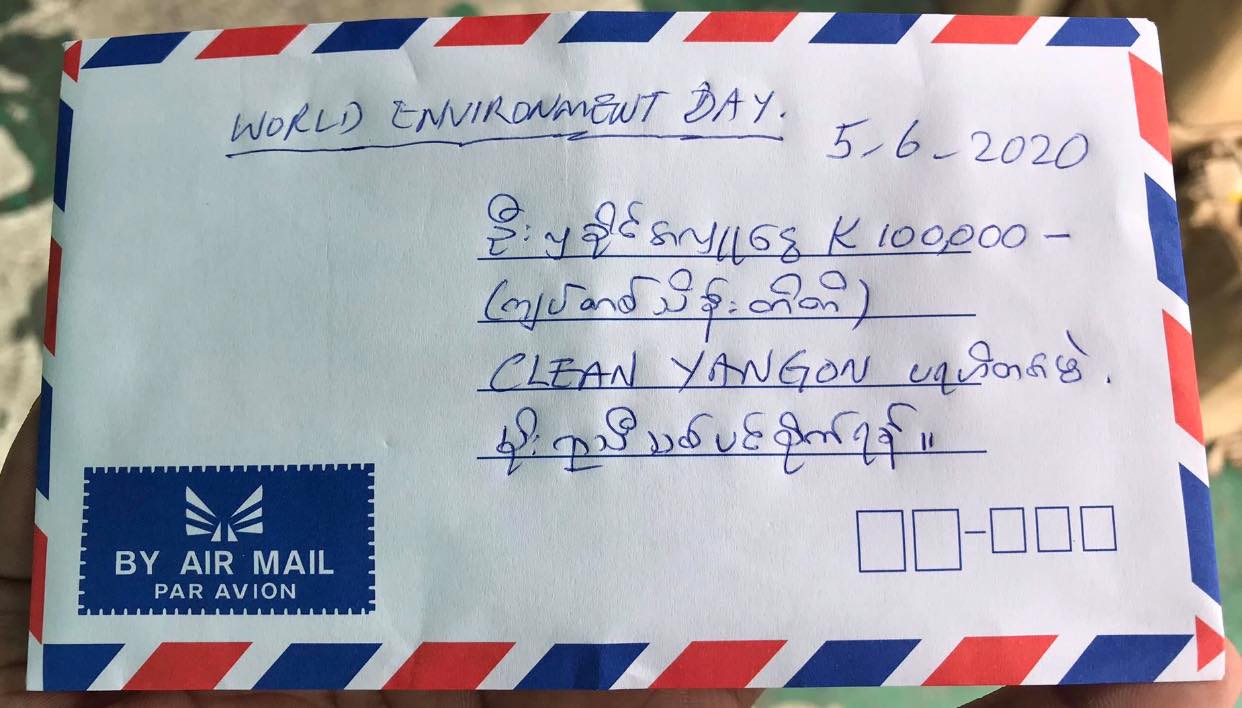 WORLD ENVIRONMENT DAY.
5-6-2020
ဦးမျှခိုင် အလှူငွေ K 100,000 -
(ကျပ်တစ်သိန်းတိတိ)
CLEAN YANGON ပရဟိတအဖွဲ့.
မိုး ဥတု သစ်ပင်စိုက်ရန်။
BY AIR MAIL
PAR AVION